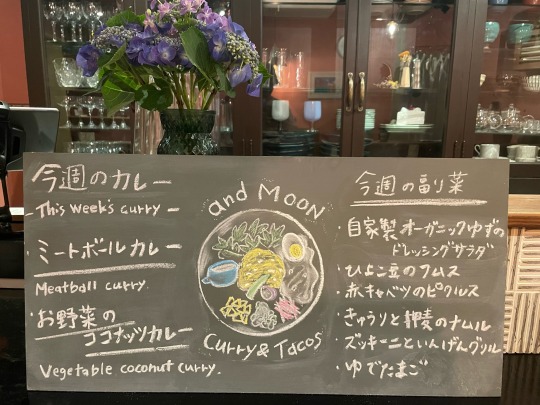 今週のカレー
- This week's curry -
・ミートボールカレー
Meatball curry.
・お野菜の
ココナッツカレー
Vegetable coconut curry.
and MOON
Curry & Tacos
今週の副菜
・自家製オーガニックゆずの
ドレッシングサラダ
・ひよこ豆のフムス
・赤キャベツのピクルス
・きゅうりと押麦のナムル
・ズッキーニといんげんグリル
・ゆでたまご